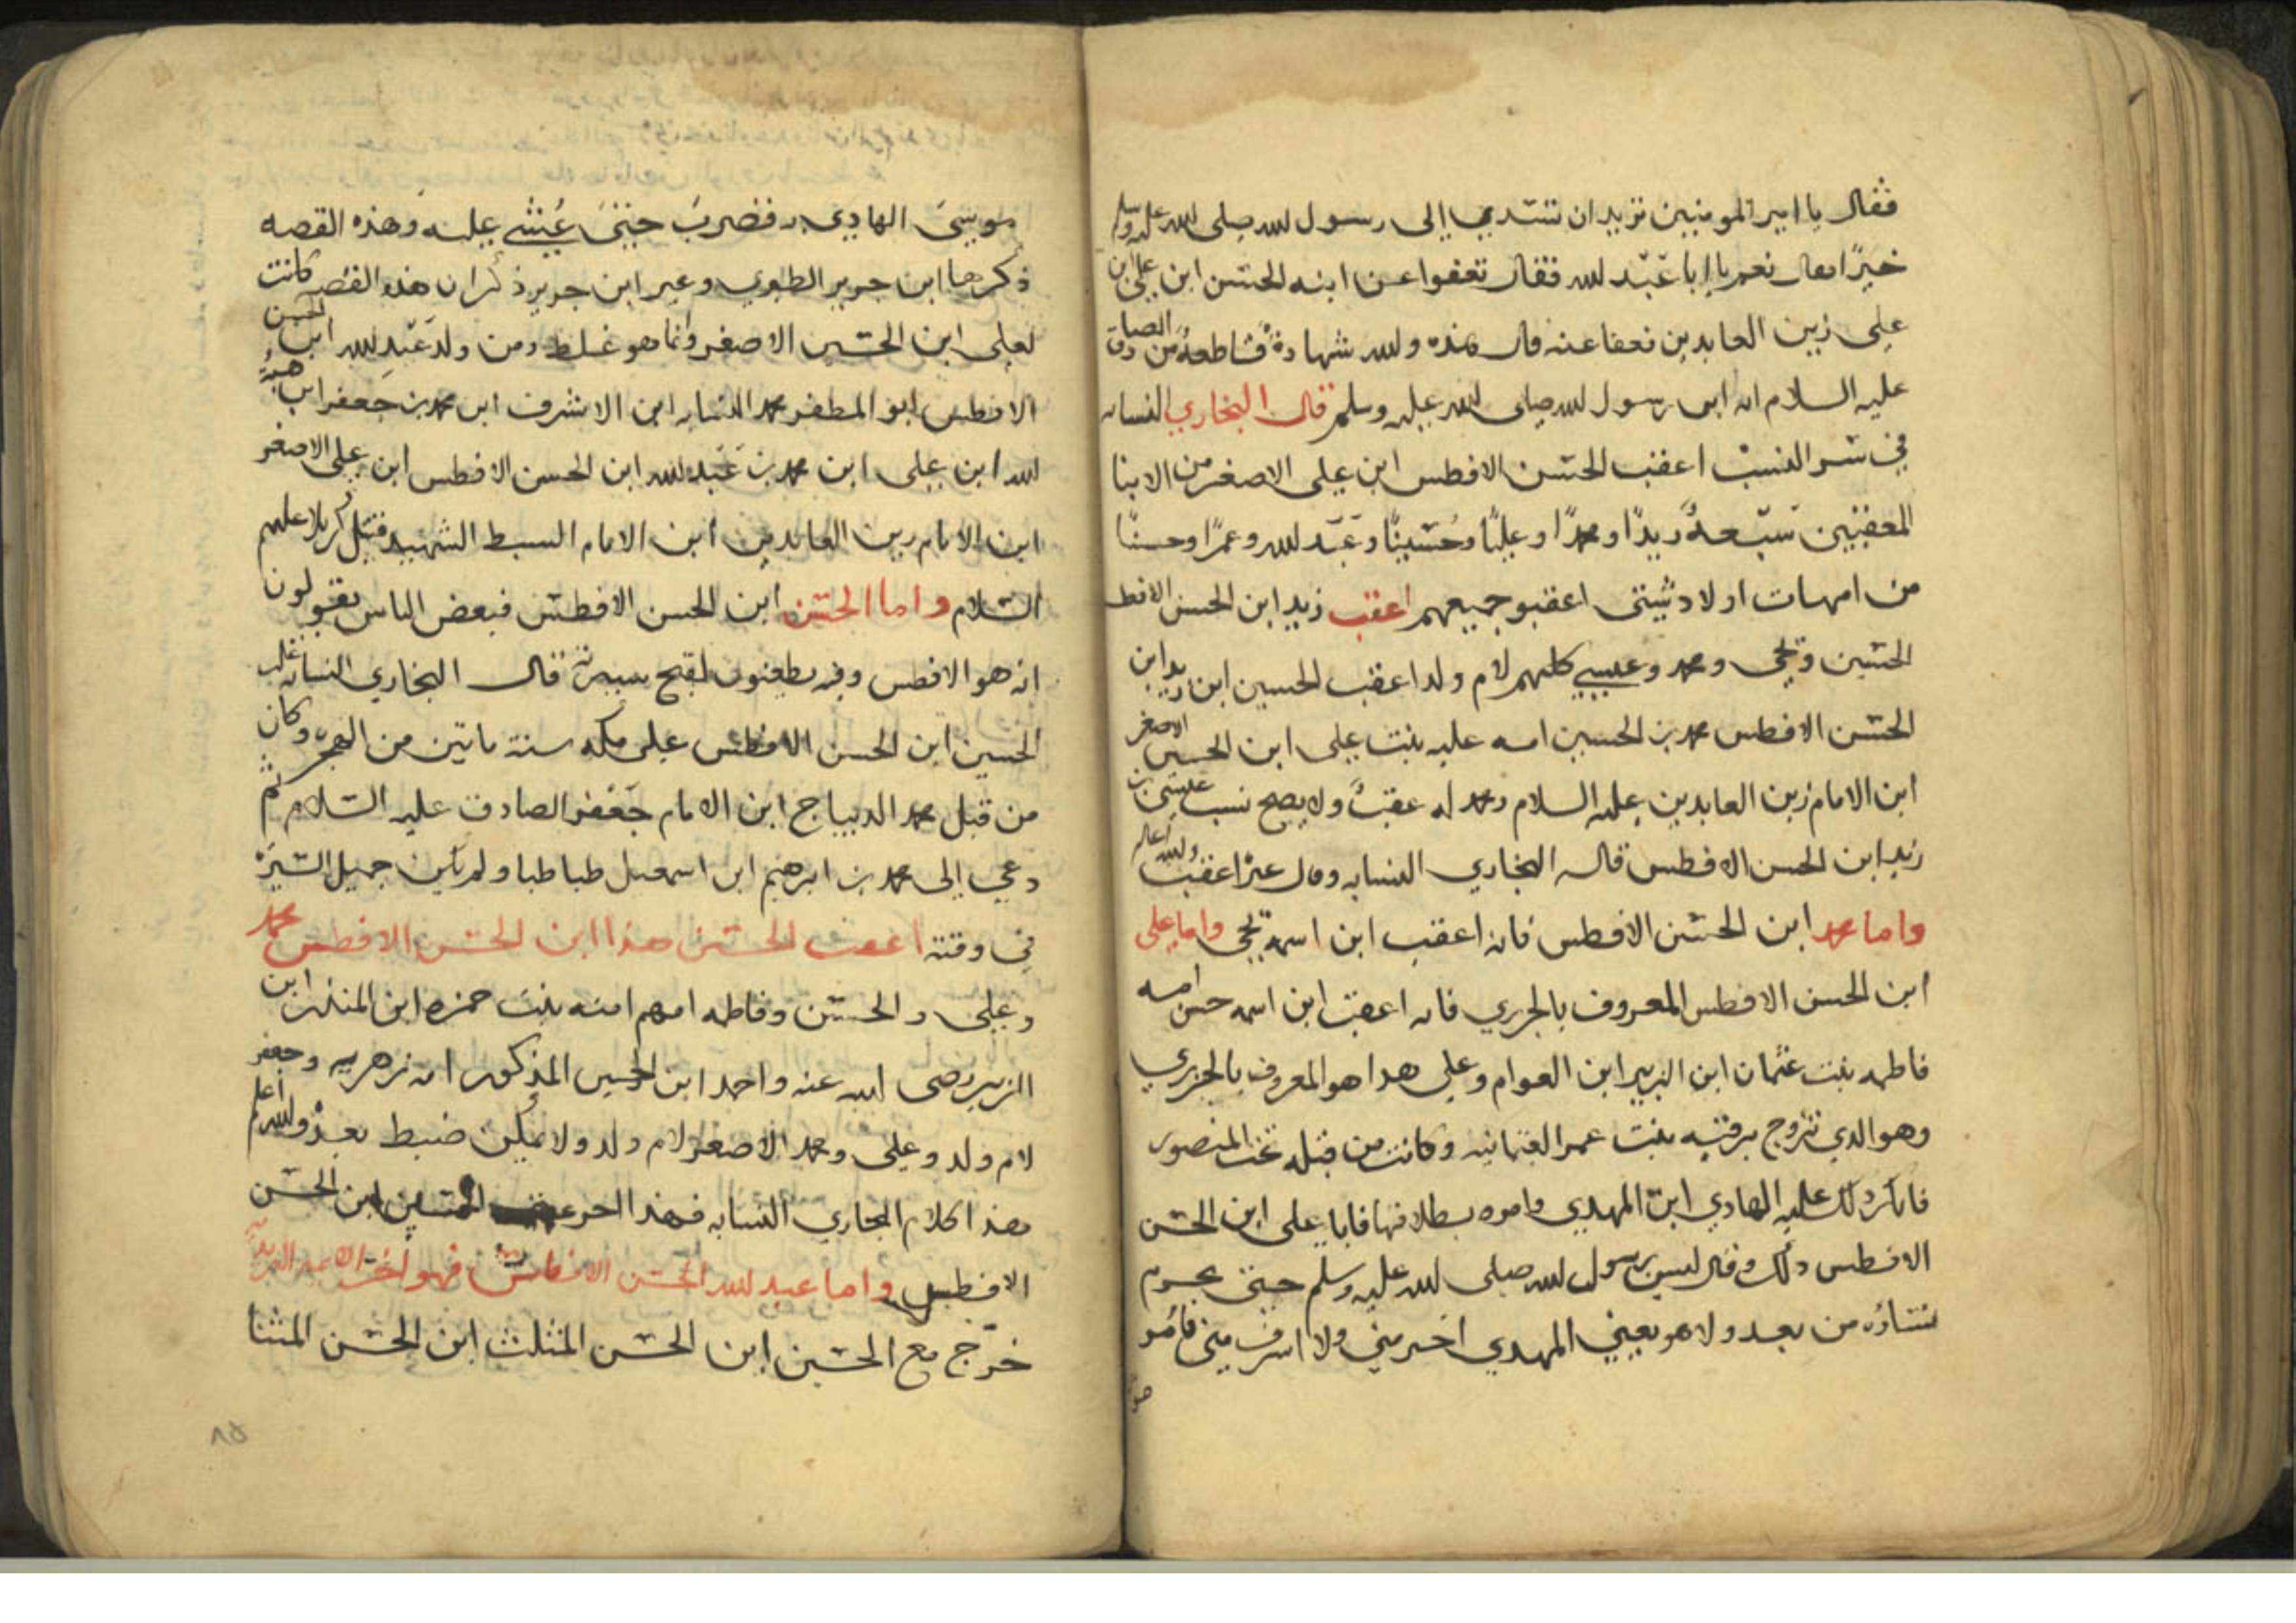 فقال يا امير المومنين تريد ان تسدي إلى رسول الله صلى الله عليه وسلم
خيرًا فقال نعم يا ابا عبد الله فقال تعفوا عن ابنه الحسن ابن علي ابن
علي زين العابدين فعفا عنه قال هذه والله شهادة قاطعة من الصادق
عليه السلام انه ابن رسول الله صلى الله عليه وسلم قال البخاري النسابه
في النسب اعقب الحسن الافطس ابن علي الاصغر من الابنا
المعقبين سبعة زيدًا ومحمدًا وعليًا وحسينًا وعبد الله وعمرًا وحسنًا
من امهات اولاد شتى اعقبو جميعهم اعقب زيد ابن الحسن الافطس
الحسين ويحيى ومحمد وعيسى كلهم لام ولد اعقب الحسين ابن زيد ابن
الحسن الافطس محمد بن الحسين امه عليه بنت علي ابن الحسين الاصغر
ابن الامام زين العابدين عليه السلام ومحمد له عقب ولا يصح نسب عيسى بن
زيد ابن الحسن الافطس قاله البخاري النسابه وقال غيره اعقب والله اعلم
واما محمد ابن الحسن الافطس فانه اعقب ابن اسمه يحيى واما علي
ابن الحسن الافطس المعروف بالجزري فانه اعقب ابن اسمه حسن امه
فاطمه بنت عثمان ابن الزبير ابن العوام وعلي هدا هو المعروف بالجزري
وهو الدي تزوج برقيه بنت عمر العثمانيه وكانت من قبله تحت المنصور
فانكر ذلك عليه الهادي ابن المهدي وامره بطلاقها فابا علي ابن الحسن
الافطس ذلك وقال ليس برسول الله صلى الله عليه وسلم حتى يحرم
نساؤه من بعد ولا هو يعني المهدي اخير مني ولا اشرف مني فامر
موسى الهادي فضرب حتى غشي عليه وهذه القصه
ذكرها ابن جرير الطبري وغير ابن جرير ذكر ان هذه القصه كانت
لعلي ابن الحسين الاصغر وانما هو غلط ومن ولد عبد الله ابن الحسن
الافطس ابو المظفر محمد النسابه ابن الاشرف ابن محمد بن جعفر ابن هبة
الله ابن علي ابن محمد بن عبد الله ابن الحسن الافطس ابن علي الاصغر
ابن الامام زين العابدين ابن الامام السبط الشهيد قتيل كربلا عليهم
السلام واما الحسن ابن الحسن الافطس فبعض الناس يقولون
انه هو الافطس وفيه يطعنون لقبح سيرته قال البخاري النسابه غلب
الحسين ابن الحسن الافطس على مكه سنة ماتين من الهجره وكان
من قبل محمد الديباج ابن الامام جعفر الصادق عليه السلام ثم
دعي إلى محمد بن ابرهيم ابن اسمعيل طباطبا ولم يكن جميل السيرة
في وقته اعقب الحسن هذا ابن الحسن الافطس محمد
وعلي والحسين وفاطمه امهم امنه بنت حمزه ابن المنذر ابن
الزبير رضى الله عنه واحمد ابن الحسين المذكور امه زهريه وجعفر
لام ولد وعلي ومحمد الاصغر لام ولد ولا يمكن ضبط بعد والله اعلم
هذا كلام البخاري النسابه فهذا اخر الحسين ابن الحسن
الافطس واما عبد الله الحسن الافطس فهو
خرج مع الحسين ابن الحسن المثلث ابن الحسن المثنا
٨٥